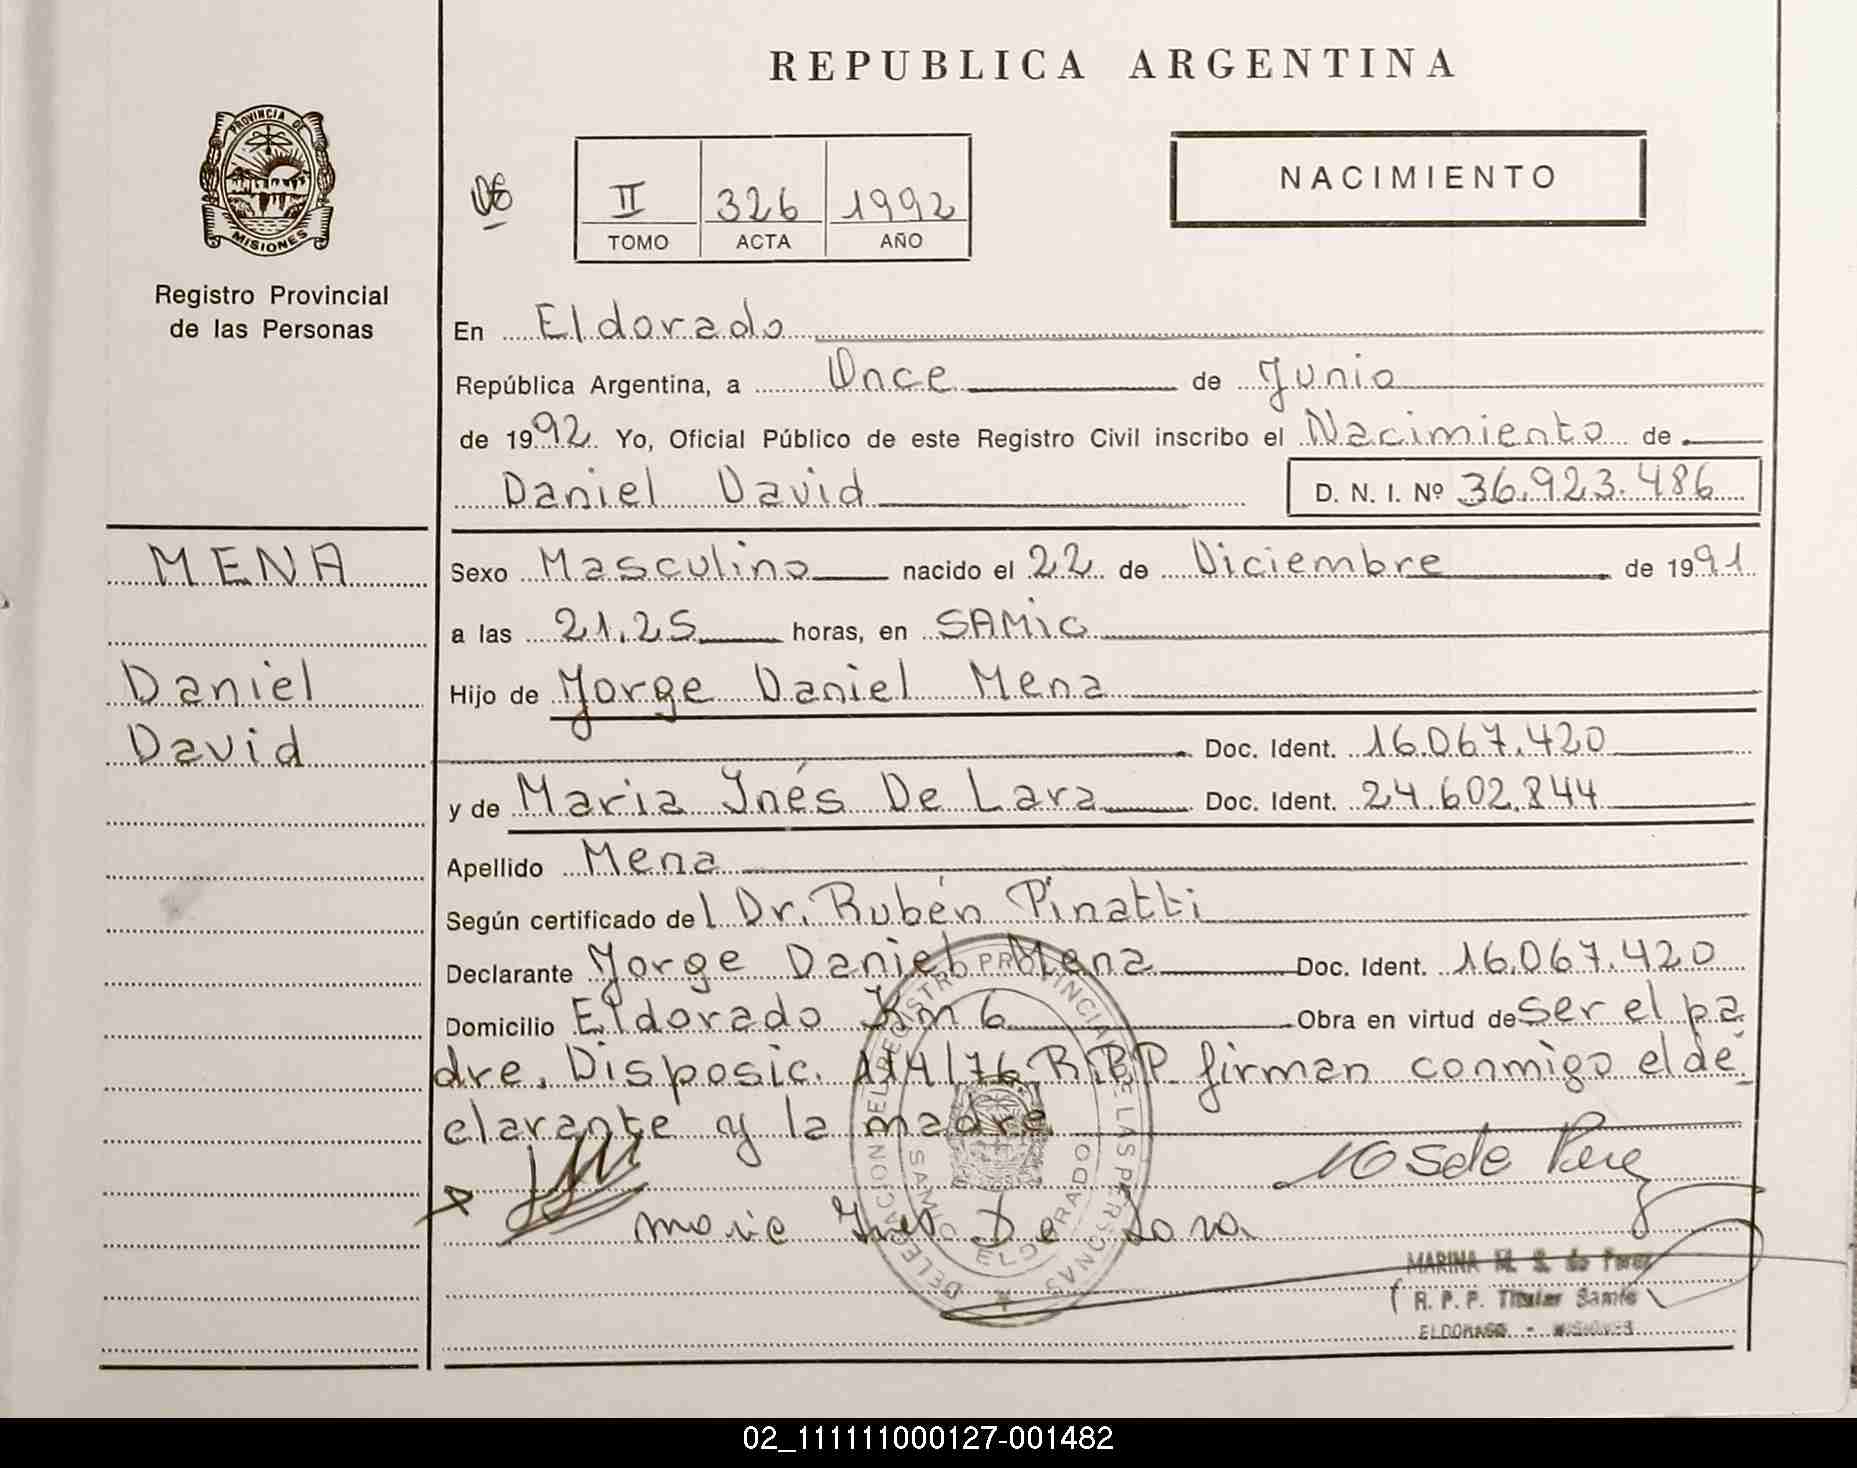 REPUBLICA ARGENTINA
PROVINCIA DE
MISIONES
Registro Provincial
de las Personas
06
II 326 1992
TOMO ACTA AÑO
NACIMIENTO
En Eldorado
República Argentina, a Once de Junio
de 1992. Yo, Oficial Público de este Registro Civil inscribo el Nacimiento de
Daniel David D. N. I. Nº 36.923.486
MENA
Daniel
David
Sexo Masculino nacido el 22 de Diciembre de 1991
a las 21.25 horas, en SAMIC
Hijo de Jorge Daniel Mena
Doc. Ident. 16.067.420
y de Maria Inés De Lara Doc. Ident. 24.602.844
Apellido Mena
Según certificado del Dr. Rubén Pinatti
Declarante Jorge Daniel Mena Doc. Ident. 16.067.420
Domicilio Eldorado Km 6 Obra en virtud de ser el pa
dre. Disposic. 114/76 R.P.P. firman conmigo el de
clarante y la madre
DELEGACION DEL REGISTRO PROVINCIAL DE LAS PERSONAS
SAMIC ELDORADO
Maria Ines De Lara
MARINA M. S. de Perez
R. P. P. Titular Samic
ELDORADO - MISIONES
02_111111000127-001482